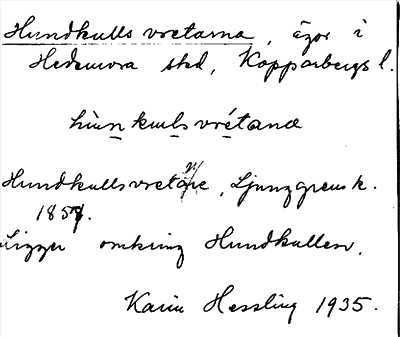 Hundkulls vretarna, ägor i
Hedemora skd, Kopparbergs l.
hùn kuls vrétana
Hundkullsvretarne, Ljunggren sk.
1857.
Ligger omkring Hundkullen.
Karin Hessling 1935.